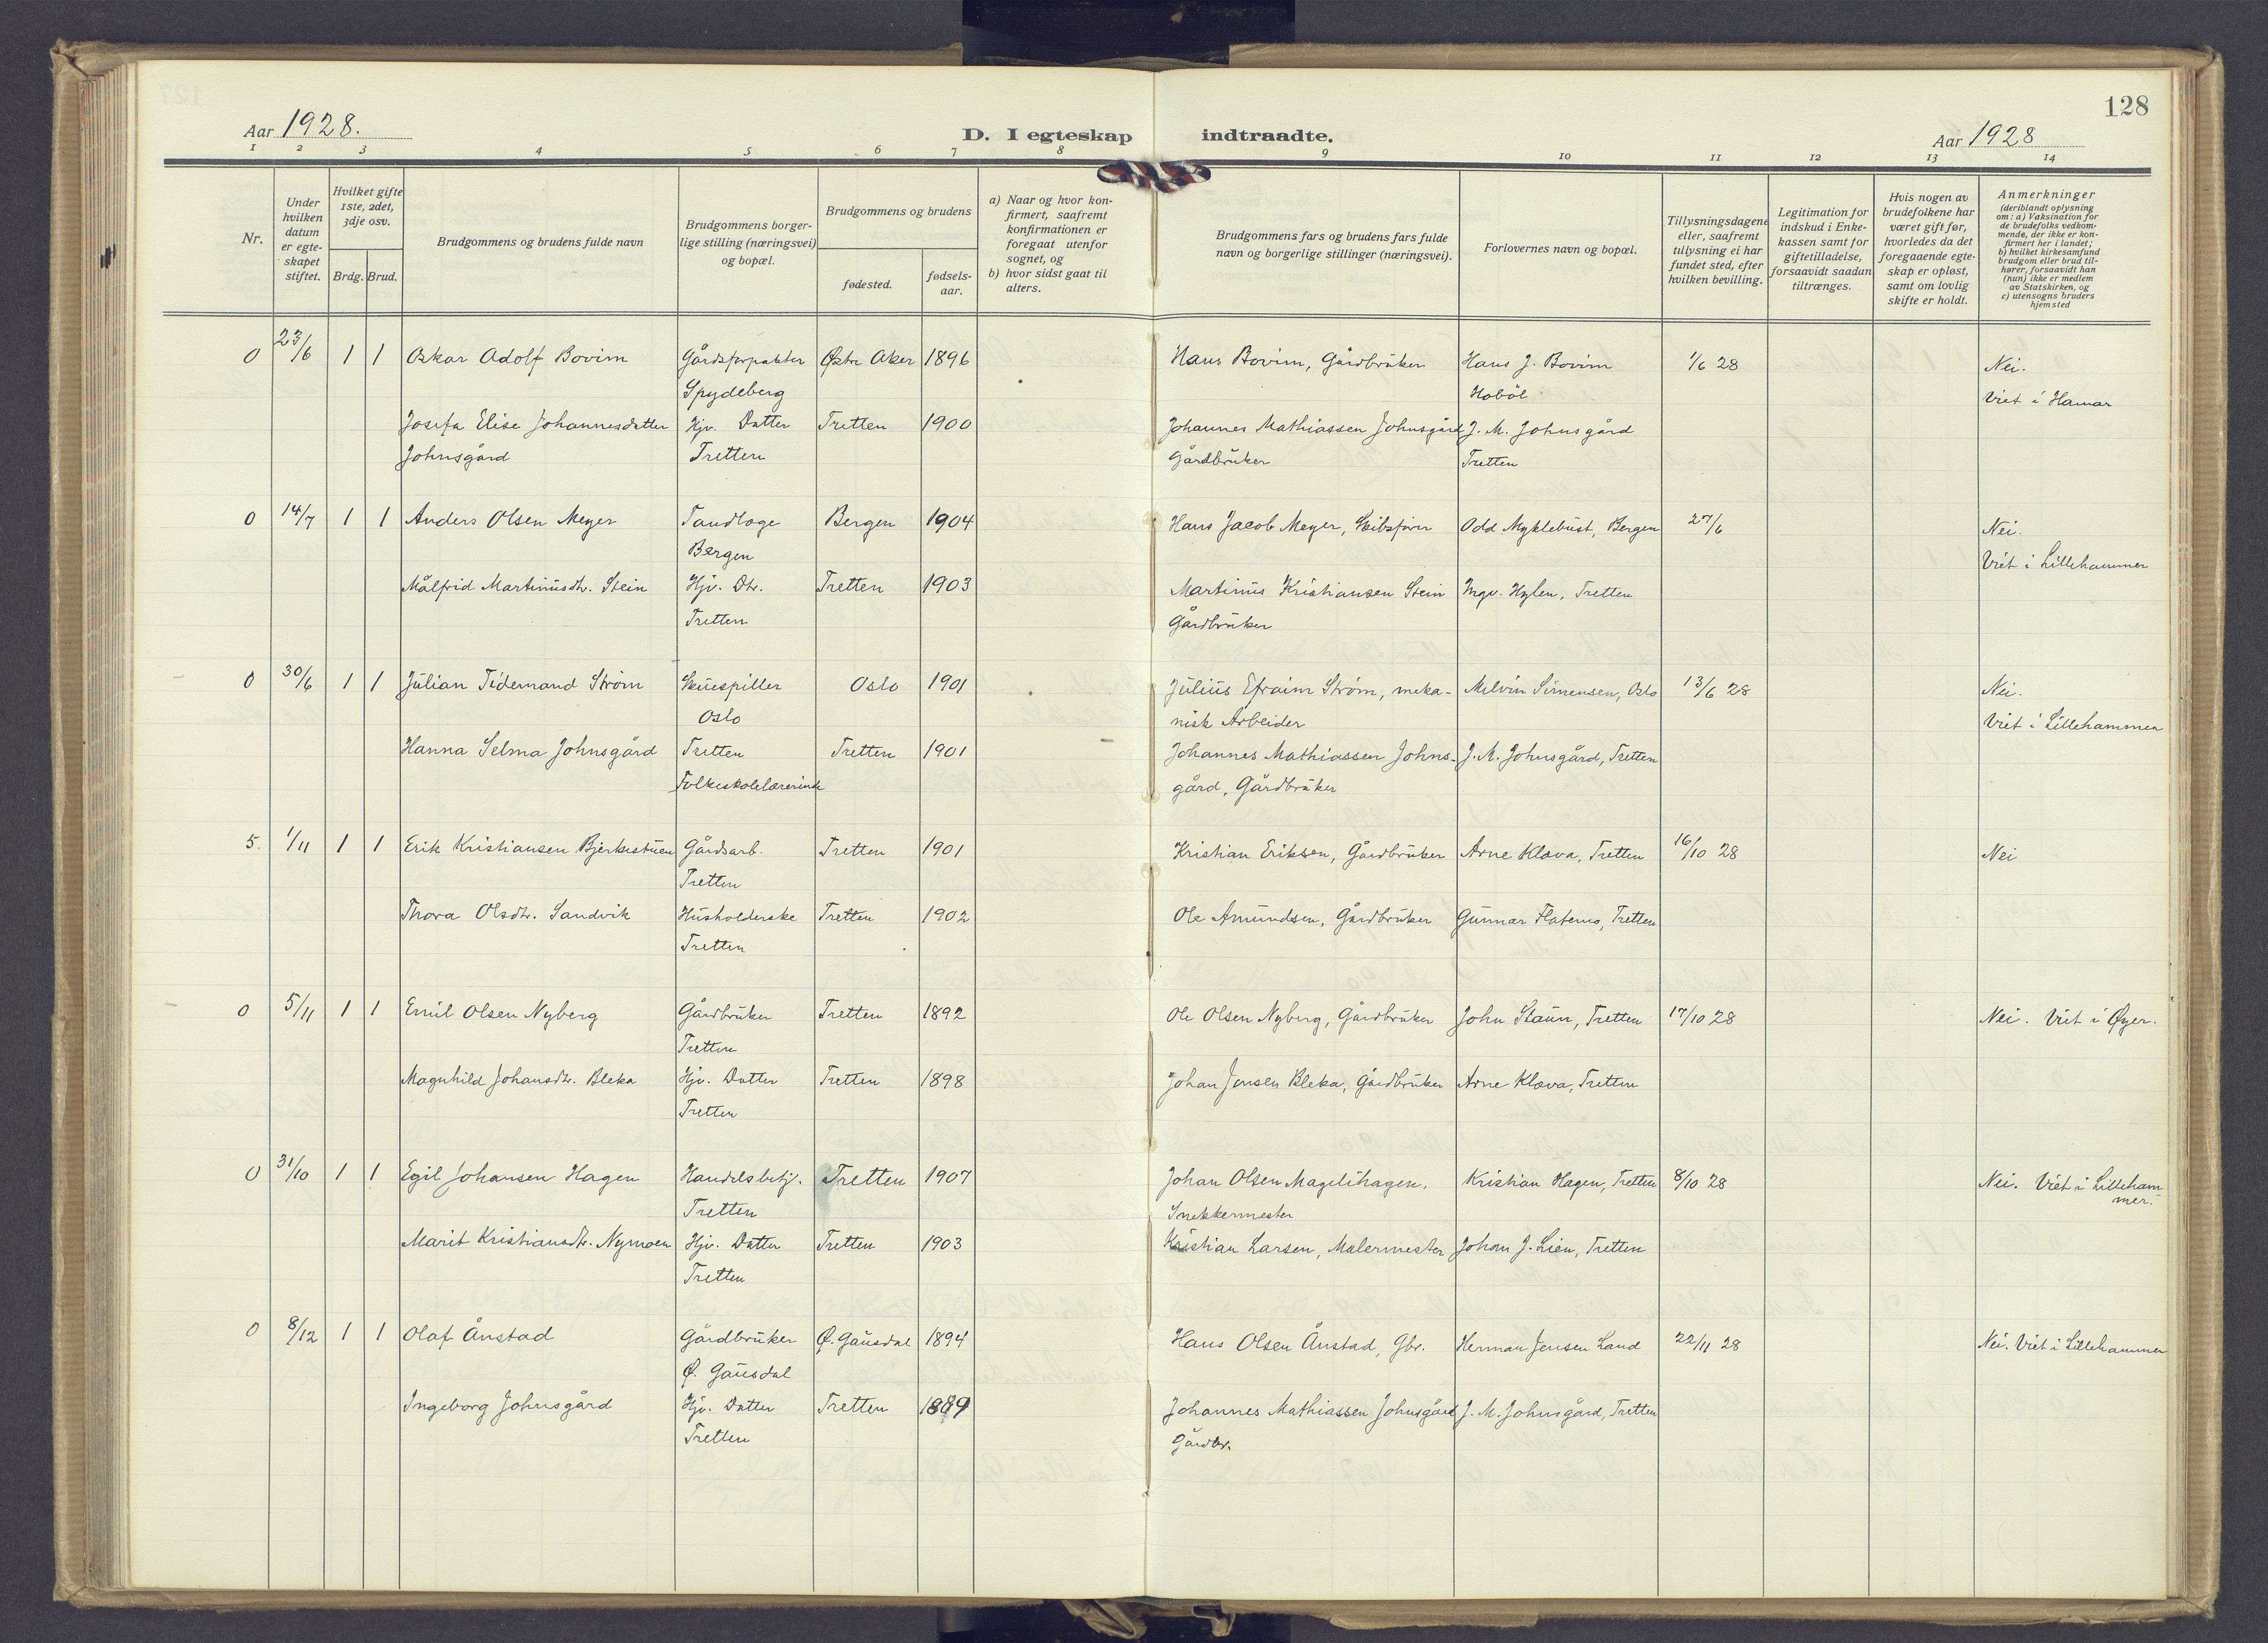 128
Aar 1928.
D. I egteskap indtraadte.
Aar 1928
1 2 3 4 5 6 7 8 9 10 11 12 13 14
Nr.
Under hvilken datum er egteskapet stiftet.
Hvilket gifte 1ste, 2det, 3dje osv.
Brdg. Brud.
Brudgommens og brudens fulde navn
Brudgommens borger-
lige stilling (næringsvei)
og bopæl.
Brudgommens og brudens
fødested.
fødsels-
aar.
a) Naar og hvor kon-
firmert, saafremt
konfirmationen er
foregaat utenfor
sognet, og
b) hvor sidst gaat til
alters.
Brudgommens fars og brudens fars fulde
navn og borgerlige stillinger (næringsvei).
Forlovernes navn og bopæl.
Tillysningsdagene
eller, saafremt
tilysning ei har
fundet sted, efter
hvilken bevilling.
Legitimation for
indskud i Enke-
kassen samt for
giftetilladelse,
forsaavidt saadan
tiltrænges.
Hvis nogen av
brudefolkene har
været gift før,
hvorledes da det
foregaaende egte-
skap er opløst,
samt om lovlig
skifte er holdt.
Anmerkninger
(deriblandt oplysning
om: a) Vaksination for
de brudefolks vedkom-
mende, der ikke er kon-
firmert her i landet;
b) hvilket kirkesamfund
brudgom eller brud til-
hører, forsaavidt han
(hun) ikke er medlem
av Statskirken, og
c) utensogns bruders
hjemsted
0 23/6 1 1 Oskar Adolf Bovim Gårdsforpakter Østre Aker 1896 Hans Bovim, Gårdbruker Hans J. Bovim 1/6 28 Nei.
Spydeberg Hobøl Viet i Hamar
Josefa Elise Johannesdatter Hjv. Datter Tretten 1900 Johannes Mathiassen Johnsgård J. M. Johnsgård
Johnsgård Tretten Gårdbruker Tretten
0 14/7 1 1 Anders Olsen Meyer Tandlæge Bergen 1904 Hans Jacob Meyer, Skibsfører Odd Myklebust, Bergen 27/6 Nei.
Bergen Viet i Lillehammer
Målfrid Martinusdtr. Stein Hjv. Dtr. Tretten 1903 Martinus Kristiansen Stein Ingv. Hylen, Tretten
Tretten Gårdbruker
0 30/6 1 1 Julian Tidemand Strøm Skuespiller Oslo 1901 Julius Efraim Strøm, meka- Melvin Simensen, Oslo 13/6 28 Nei.
Oslo nisk Arbeider Viet i Lillehammer
Hanna Selma Johnsgård Tretten Tretten 1901 Johannes Mathiassen Johns- J. M. Johnsgård, Tretten
Folkeskolelærerinde gård, Gårdbruker
5. 1/11 1 1 Erik Kristiansen Bjerkestuen Gårdsarb. Tretten 1901 Kristian Eriksen, Gårdbruker Arne Klæva, Tretten 16/10 28 Nei
Tretten
Thora Olsdtr. Sandvik Husholderske Tretten 1902 Ole Amundsen, Gårdbruker Gunnar Flatemo, Tretten
Tretten
0 5/11 1 1 Emil Olsen Nyberg Gårdbruker Tretten 1892 Ole Olsen Nyberg, Gårdbruker John Staun, Tretten 17/10 28 Nei. Viet i Øyer.
Tretten
Magnhild Johansdtr. Bleka Hjv. Datter Tretten 1898 Johan Jensen Bleka, Gårdbruker Arne Klæva, Tretten
Tretten
0 31/10 1 1 Egil Johansen Hagen Handelsbetj. Tretten 1907 Johan Olsen Magelihagen, Kristian Hagen, Tretten 8/10 28 Nei. Viet i Lilleham
Tretten Snekkermester mer.
Marit Kristiansdtr. Nymoen Hjv. Datter Tretten 1903 Kristian Larsen, Malermester Johan J. Lien, Tretten
Tretten
0 8/12 1 1 Olaf Ånstad Gårdbruker Ø. Gausdal 1894 Hans Olsen Ånstad, Gbr. Herman Jensen Land 22/11 28 Nei. Viet i Lillehammer
Ø. Gausdal
Ingeborg Johnsgård Hjv. Datter Tretten 1889 Johannes Mathiassen Johnsgård J. M. Johnsgård, Tretten
Tretten Gårdbr.